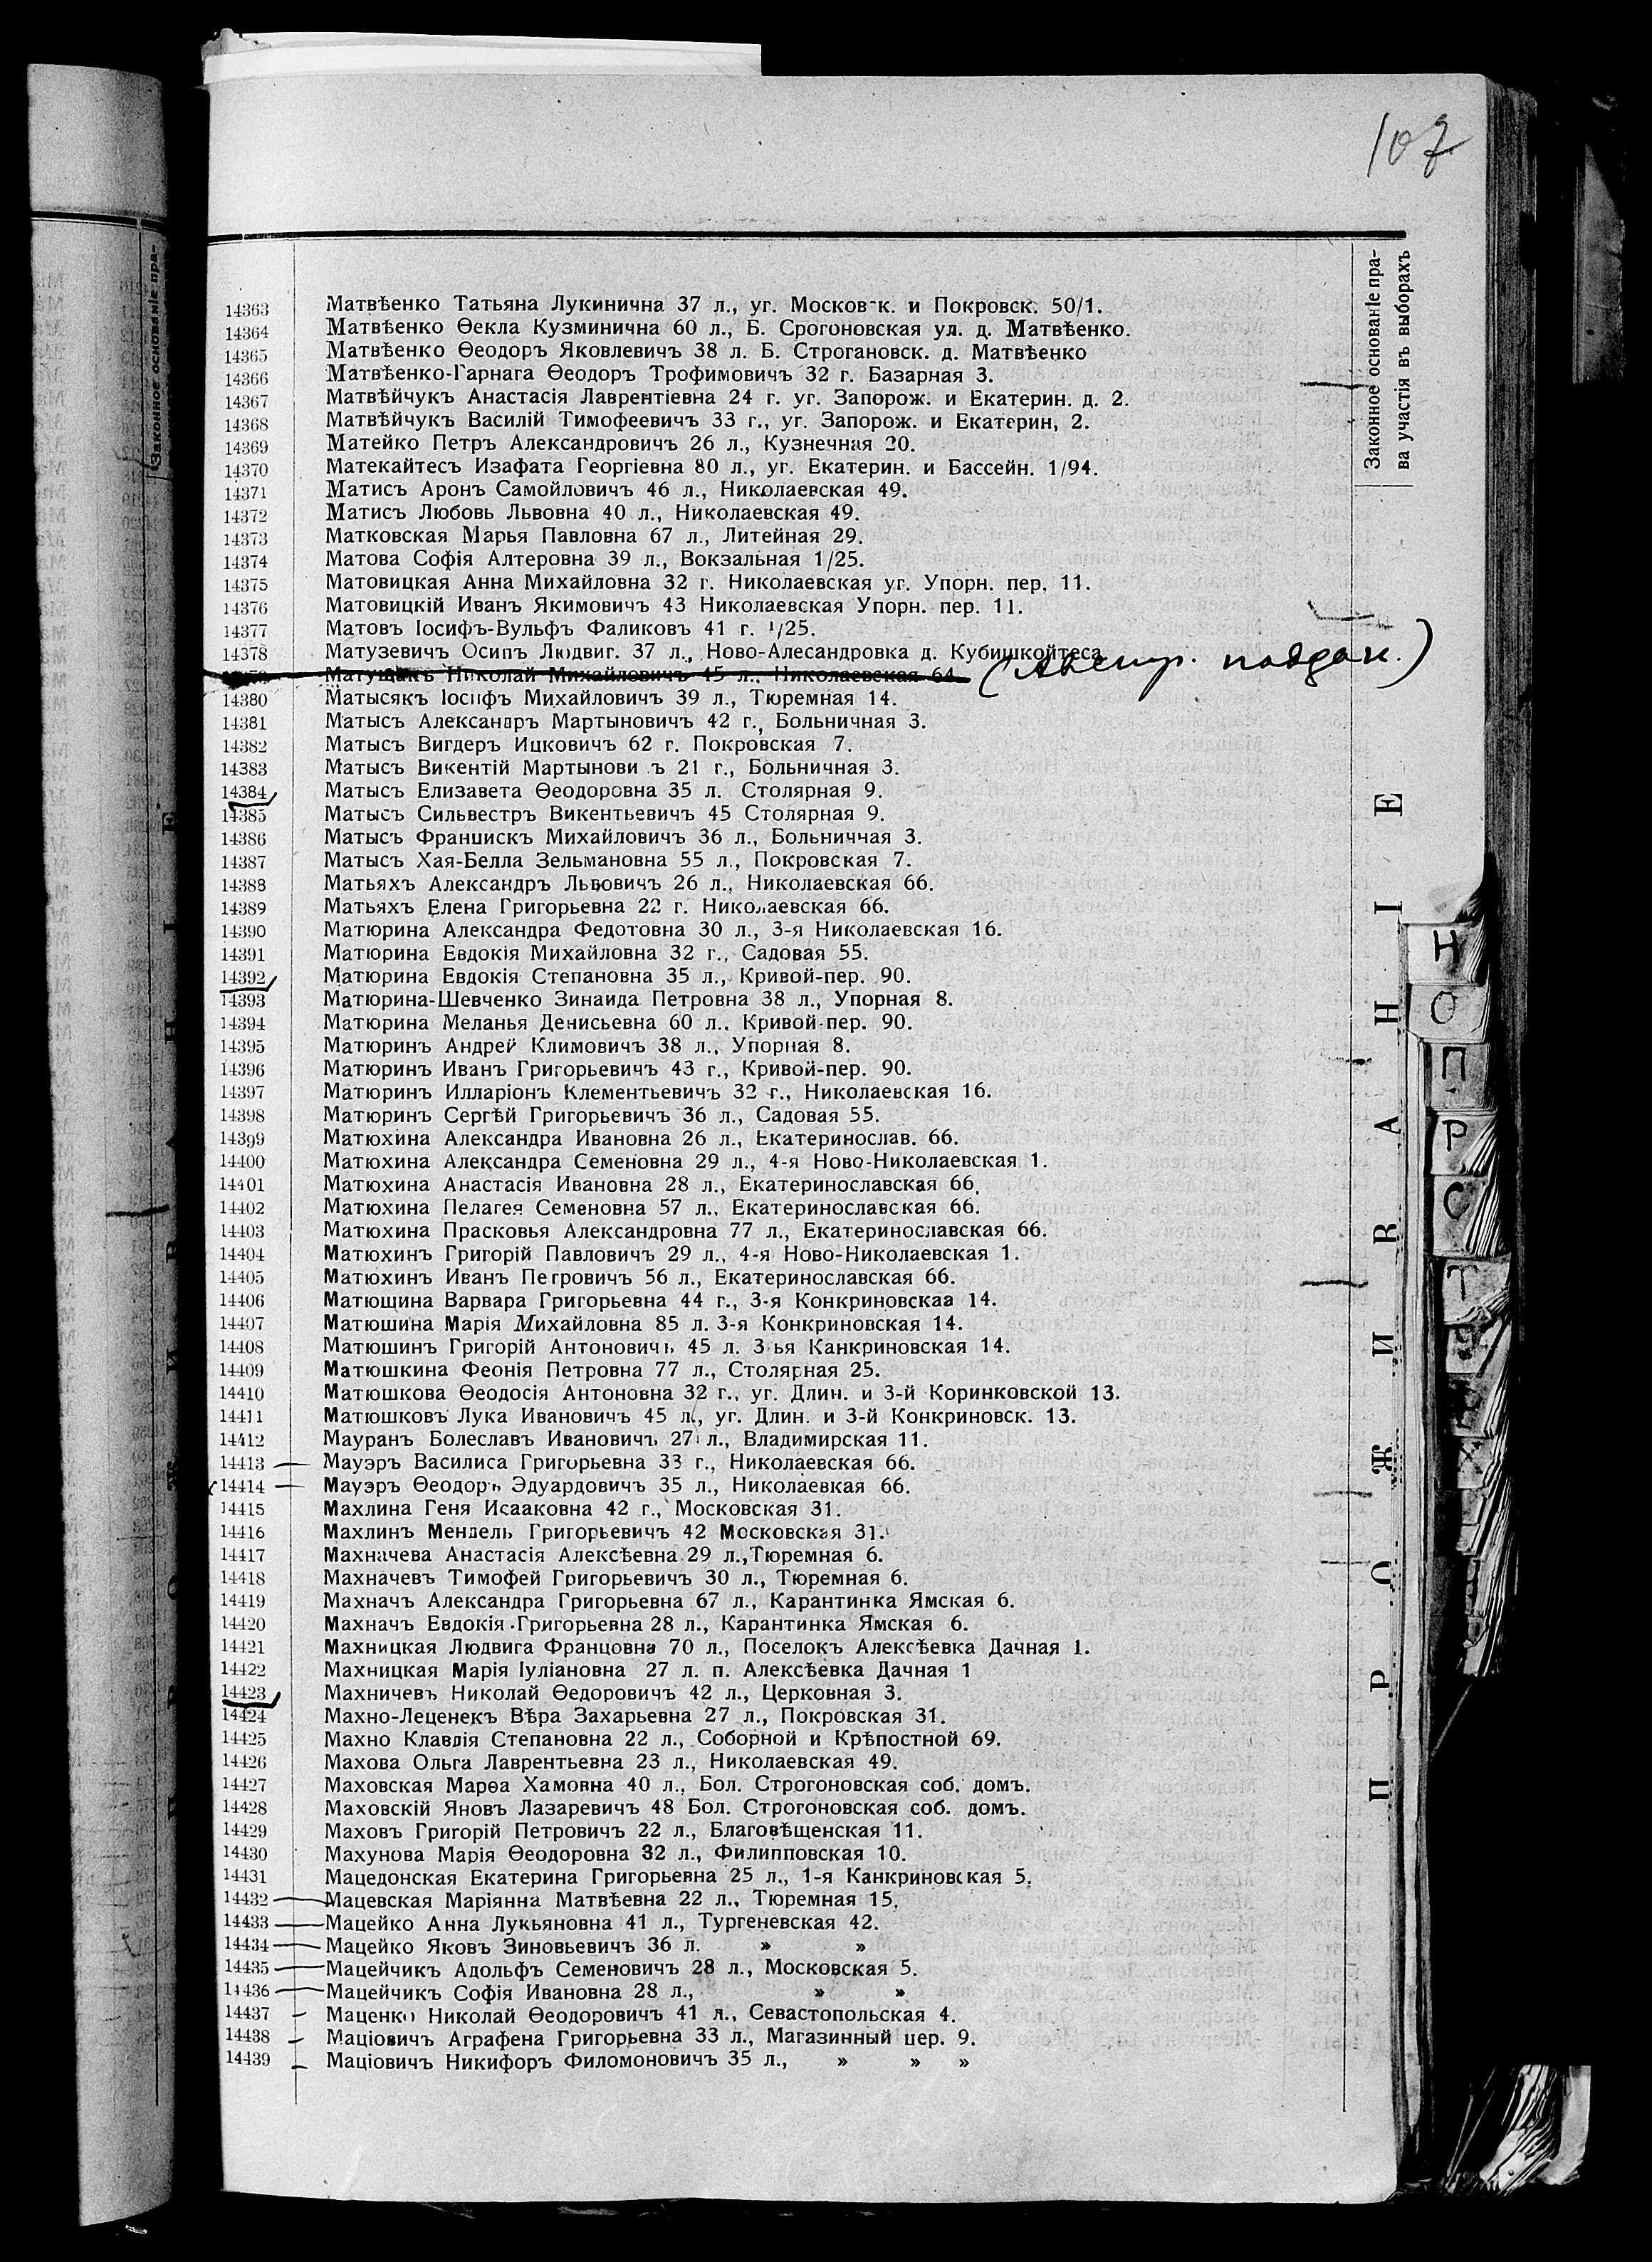 107
Законное основаніе пра-
ва участія въ выборахъ
14363 Матвѣенко Татьяна Лукинична 37 л., уг. Москов-к. и Покровск. 50/1.
14364 Матвѣенко Ѳекла Кузминична 60 л., Б. Срогоновская ул. д. Матвѣенко.
14365 Матвѣенко Ѳеодоръ Яковлевичъ 38 л. Б. Строгановск. д. Матвѣенко
14366 Матвѣенко-Гарнага Ѳеодоръ Трофимовичъ 32 г. Базарная 3.
14367 Матвѣйчукъ Анастасія Лаврентіевна 24 г. уг. Запорож. и Екатерин. д. 2.
14368 Матвѣйчукъ Василій Тимофеевичъ 33 г., уг. Запорож. и Екатерин, 2.
14369 Матейко Петръ Александровичъ 26 л., Кузнечная 20.
14370 Матекайтесъ Изафата Георгіевна 80 л., уг. Екатерин. и Бассейн. 1/94.
14371 Матисъ Аронъ Самойловичъ 46 л., Николаевская 49.
14372 Матисъ Любовь Львовна 40 л., Николаевская 49.
14373 Матковская Марья Павловна 67 л., Литейная 29.
14374 Матова Софія Алтеровна 39 л., Вокзальная 1/25.
14375 Матовицкая Анна Михайловна 32 г. Николаевская уг. Упорн. пер. 11.
14376 Матовицкій Иванъ Якимовичъ 43 Николаевская Упорн. пер. 11.
14377 Матовъ Іосифъ-Вульфъ Фаликовъ 41 г. 1/25.
14378 Матузевичъ Осипъ Людвиг. 37 л., Ново-Алесандровка д. Кубишкойтеса
Матущакъ Николай Михайловичъ 45 л., Николаевская 64 (Австр. поддан.)
14380 Матысякъ Іосифъ Михайловичъ 39 л., Тюремная 14.
14381 Матысъ Александръ Мартыновичъ 42 г., Больничная 3.
14382 Матысъ Вигдеръ Ицковичъ 62 г. Покровская 7.
14383 Матысъ Викентій Мартынови ъ 21 г., Больничная 3.
14384 Матысъ Елизавета Ѳеодоровна 35 л. Столярная 9.
14385 Матысъ Сильвестръ Викентьевичъ 45 Столярная 9.
14386 Матысъ Францискъ Михайловичъ 36 л., Больничная 3.
14387 Матысъ Хая-Белла Зельмановна 55 л., Покровская 7.
14388 Матьяхъ Александръ Львовичъ 26 л., Николаевская 66.
14389 Матьяхъ Елена Григорьевна 22 г. Николаевская 66.
14390 Матюрина Александра Федотовна 30 л., 3-я Николаевская 16.
14391 Матюрина Евдокія Михайловна 32 г., Садовая 55.
14392 Матюрина Евдокія Степановна 35 л., Кривой-пер. 90.
14393 Матюрина-Шевченко Зинаида Петровна 38 л., Упорная 8.
14394 Матюрина Меланья Денисьевна 60 л., Кривой-пер. 90.
14395 Матюринъ Андрей Климовичъ 38 л., Упорная 8.
14396 Матюринъ Иванъ Григорьевичъ 43 г., Кривой-пер. 90.
14397 Матюринъ Илларіонъ Клементьевичъ 32 г., Николаевская 16.
14398 Матюринъ Сергѣй Григорьевичъ 36 л., Садовая 55.
14399 Матюхина Александра Ивановна 26 л., Екатеринослав. 66.
14400 Матюхина Александра Семеновна 29 л., 4-я Ново-Николаевская 1.
14401 Матюхина Анастасія Ивановна 28 л., Екатеринославская 66.
14402 Матюхина Пелагея Семеновна 57 л., Екатеринославская 66.
14403 Матюхина Прасковья Александровна 77 л., Екатеринославская 66.
14404 Матюхинъ Григорій Павловичъ 29 л., 4-я Ново-Николаевская 1.
14405 Матюхинъ Иванъ Петровичъ 56 л., Екатеринославская 66.
14406 Матющина Варвара Григорьевна 44 г., 3-я Конкриновскаа 14.
14407 Матюшина Марія Михайловна 85 л. 3-я Конкриновская 14.
14408 Матюшинъ Григорій Антоновичъ 45 л. 3-ья Канкриновская 14.
14409 Матюшкина Феонія Петровна 77 л., Столярная 25.
14410 Матюшкова Ѳеодосія Антоновна 32 г., уг. Длин. и 3-й Коринковской 13.
14411 Матюшковъ Лука Ивановичъ 45 л., уг. Длин. и 3-й Конкриновск. 13.
14412 Мауранъ Болеславъ Ивановичъ 27 л., Владимирская 11.
14413 Мауэръ Василиса Григорьевна 33 г., Николаевская 66.
14414 Мауэръ Ѳеодоръ Эдуардовичъ 35 л., Николаевкая 66.
14415 Махлина Геня Исааковна 42 г., Московская 31.
14416 Махлинъ Мендель Григорьевичъ 42 Московская 31.
14417 Махначева Анастасія Алексѣевна 29 л.,Тюремная 6.
14418 Махначевъ Тимофей Григорьевичъ 30 л., Тюремная 6.
14419 Махначъ Александра Григорьевна 67 л., Карантинка Ямская 6.
14420 Махначъ Евдокія Григорьевна 28 л., Карантинка Ямская 6.
14421 Махницкая Людвига Францовна 70 л., Поселокъ Алексѣевка Дачная 1.
14422 Махницкая Марія Іуліановна 27 л. п. Алексѣевка Дачная 1
14423 Махничевъ Николай Ѳедоровичъ 42 л., Церковная 3.
14424 Махно-Леценекъ Вѣра Захарьевна 27 л., Покровская 31.
14425 Махно Клавдія Степановна 22 л., Соборной и Крѣпостной 69.
14426 Махова Ольга Лаврентьевна 23 л., Николаевская 49.
14427 Маховская Марѳа Хамовна 40 л., Бол. Строгоновская соб. домъ.
14428 Маховскій Яновъ Лазаревичъ 48 Бол. Строгоновская соб. домъ.
14429 Маховъ Григорій Петровичъ 22 л., Благовѣщенская 11.
14430 Махунова Марія Ѳеодоровна 32 л., Филипповская 10.
14431 Мацедонская Екатерина Григорьевна 25 л., 1-я Канкриновская 5.
14432 Мацевская Маріянна Матвѣевна 22 л., Тюремная 15.
14433 Мацейко Анна Лукьяновна 41 л., Тургеневская 42.
14434 Мацейко Яковъ Зиновьевичъ 36 л. » »
14435 Мацейчикъ Адольфъ Семеновичъ 28 л., Московская 5.
14436 Мацейчикъ Софія Ивановна 28 л., » »
14437 Маценко Николай Ѳеодоровичъ 41 л., Севастопольская 4.
14438 Маціовичъ Аграфена Григорьевна 33 л., Магазинный пер. 9.
14439 Маціовичъ Никифоръ Филомоновичъ 35 л., » » »
ПРОЖИВАНІЕ
Н
О
П
Р
С
Т
У
Х
Законное основаніе пра-